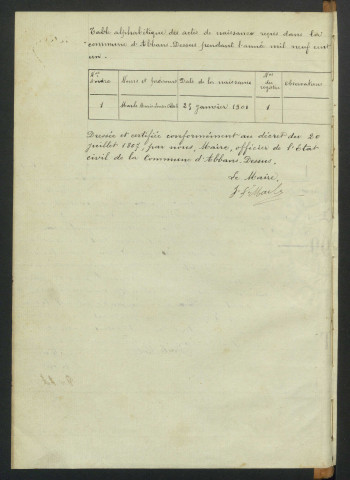 Table alphabétique des actes de naissance reçus dans la
commune d'Abbans-Dessus pendant l'année mil neuf cent
un.
Nos d'ordre Noms et Prénoms Date de la naissance Nos du registre Observations
1 Marle 25 janvier 1901 1
Dressée et certifiée conformément au décret du 20
juillet 1807, par nous, Maire, officier de l'Etat
civil de la Commune d'Abbans-Dessus.
Le Maire,